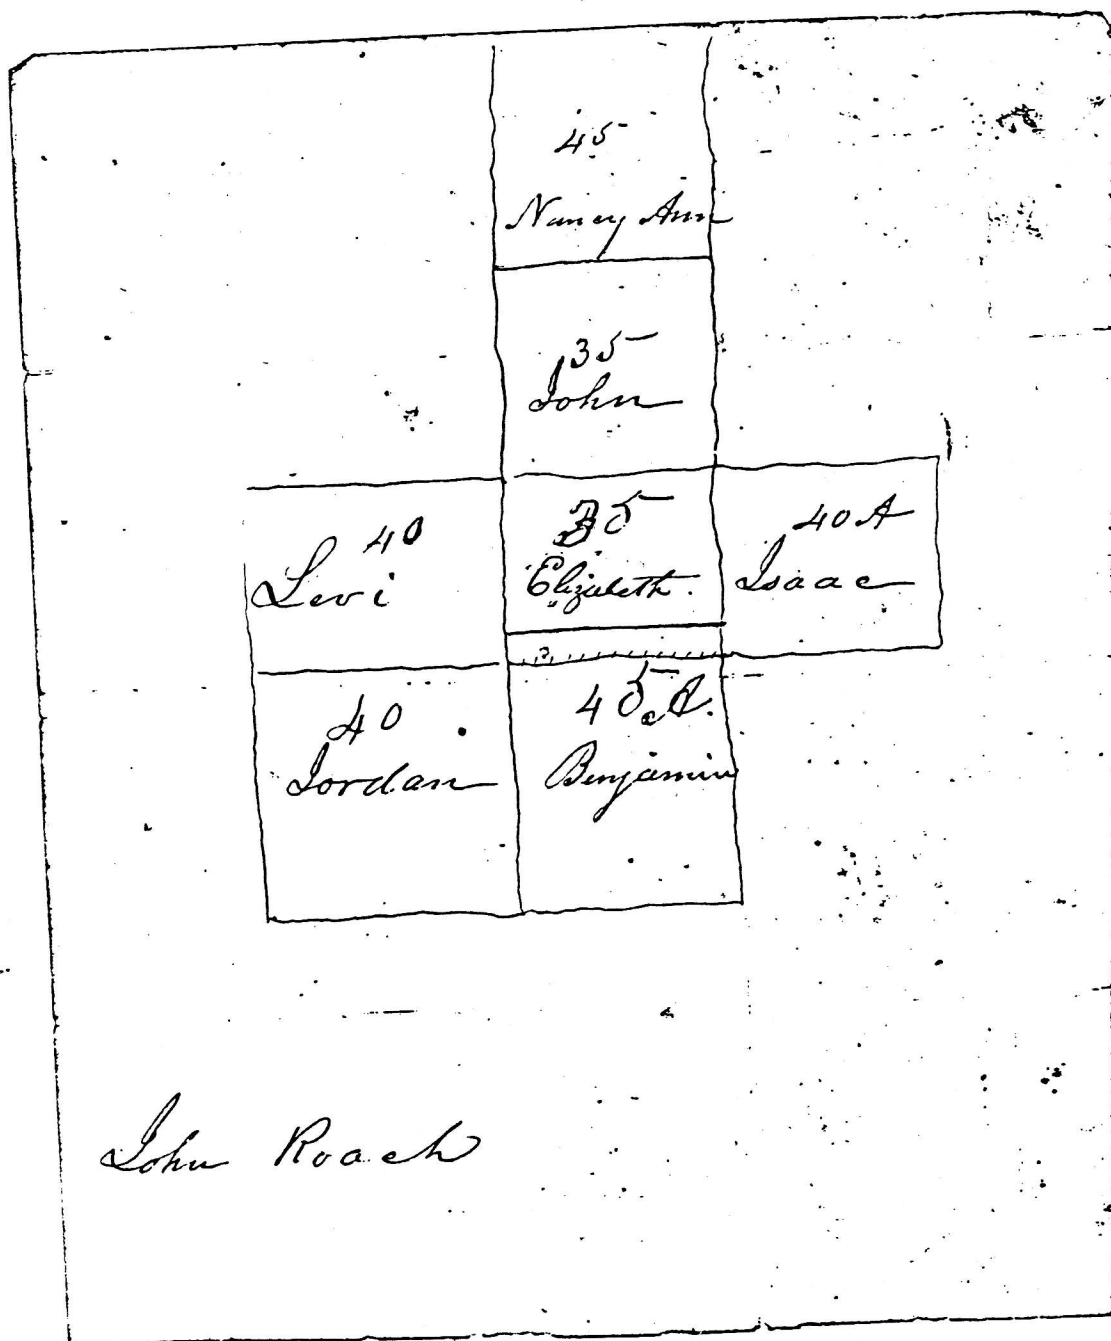 45
Nancy Ann
35
John
40
Levi
35
Elizabeth.
40 A
Isaac
40
Jordan
45 A.
Benjamin
John Roach